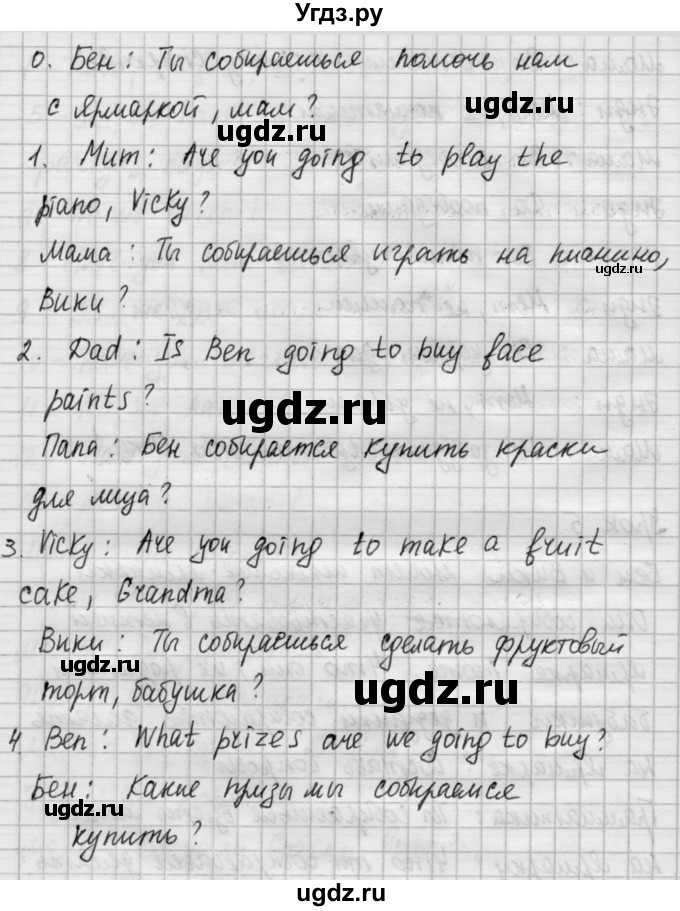 Угдз.ру
0. Бен: Ты собираешься помочь нам
с ярмаркой, мам?
1. Mum: Are you going to play the
piano, Vicky?
Мама: Ты собираешься играть на пианино,
Вики?
2. Dad: Is Ben going to buy face
paints?
Папа: Бен собирается купить краски
для лица?
3. Vicky: Are you going to make a fruit
cake, Grandma?
Вики: Ты собираешься сделать фруктовый
торт, бабушка?
4. Ben: What prizes are we going to buy?
Бен: Какие призы мы собираемся
купить?
ugdz.ru
ugdz.ru
ugdz.ru
ugdz.ru
ugdz.ru
ugdz.ru
ugdz.ru
ugdz.ru